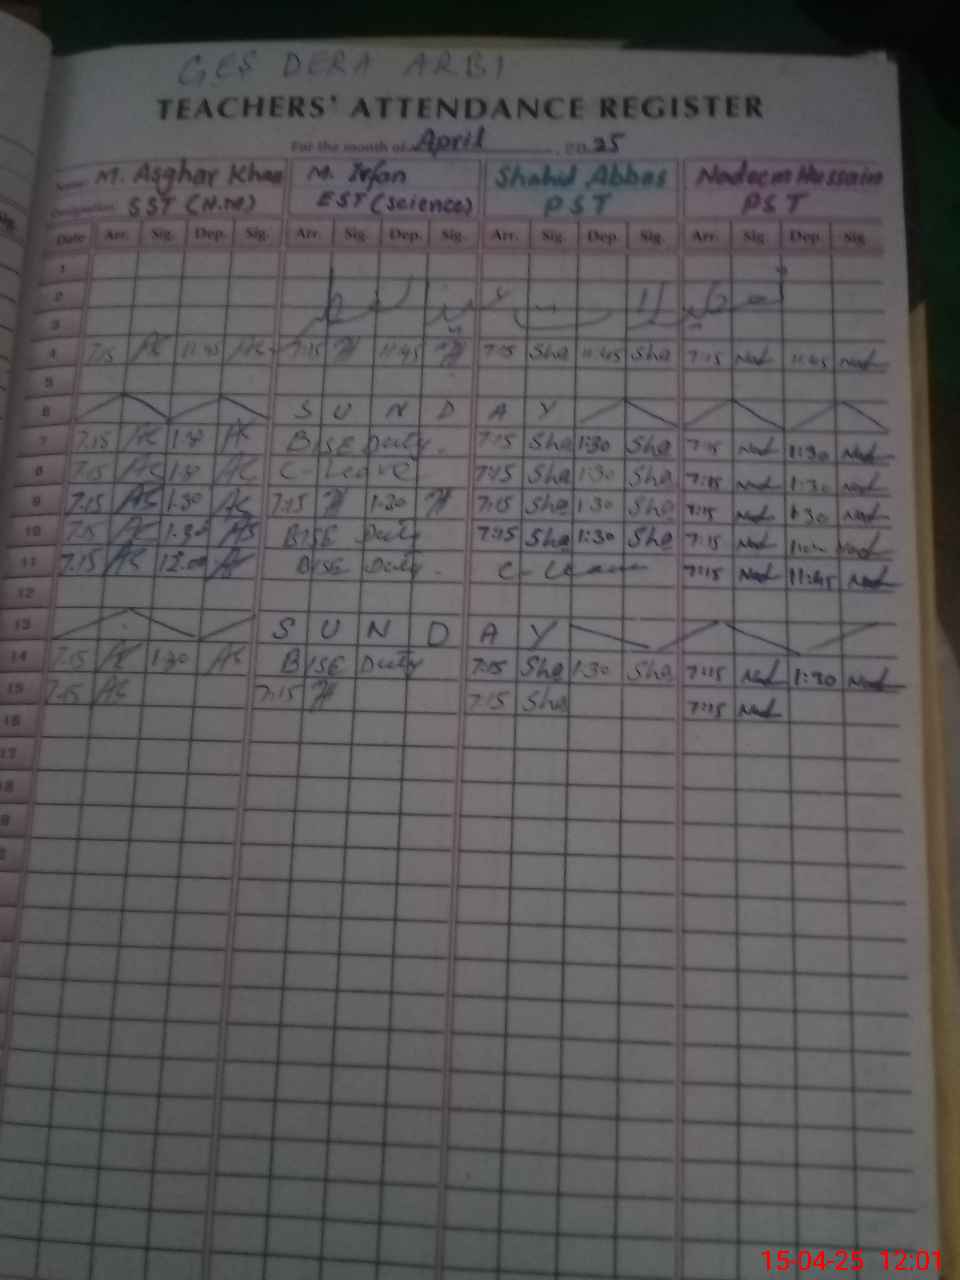 GES DERA ARBI
TEACHERS' ATTENDANCE REGISTER
For the month of April 2025
Name M. Asghar Khan M. Irfan Shahid Abbas Nadeem Hussain
Designation SST (H.M) EST (science) PST PST
Date Arr. Sig. Dep. Sig. Arr. Sig. Dep. Sig. Arr. Sig. Dep. Sig. Arr. Sig. Dep. Sig.
1
2
3
4 7:15 11:45 7:15 11:45 7:15 Sha 11:45 Sha 7:15 Nad 11:45 Nad
5
6 SUNDAY
7 7:15 1:30 BISE Duty. 7:15 Sha 1:30 Sha 7:15 Nad 1:30 Nad
8 7:15 1:30 C-Leave 7:15 Sha 1:30 Sha 7:15 Nad 1:30 Nad
9 7:15 1:30 7:15 1:30 7:15 Sha 1:30 Sha 7:15 Nad 1:30 Nad
10 7:15 1:30 BISE Duty 7:15 Sha 1:30 Sha 7:15 Nad Nad
11 7:15 12:00 BISE Duty. C-Leave 7:15 Nad 11:45 Nad
12
13 SUNDAY
14 7:15 1:30 BISE Duty 7:15 Sha 1:30 Sha 7:15 Nad 1:30 Nad
15 7:15 7:15 7:15 Sha 7:15 Nad
16
17
18
9
15-04-25 12:01